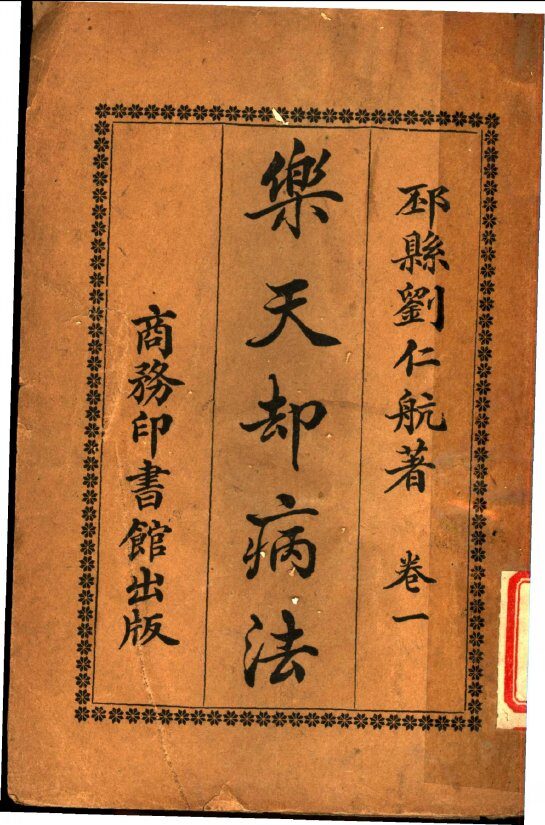 邳縣劉仁航著 卷一
樂天却病法
商務印書館出版